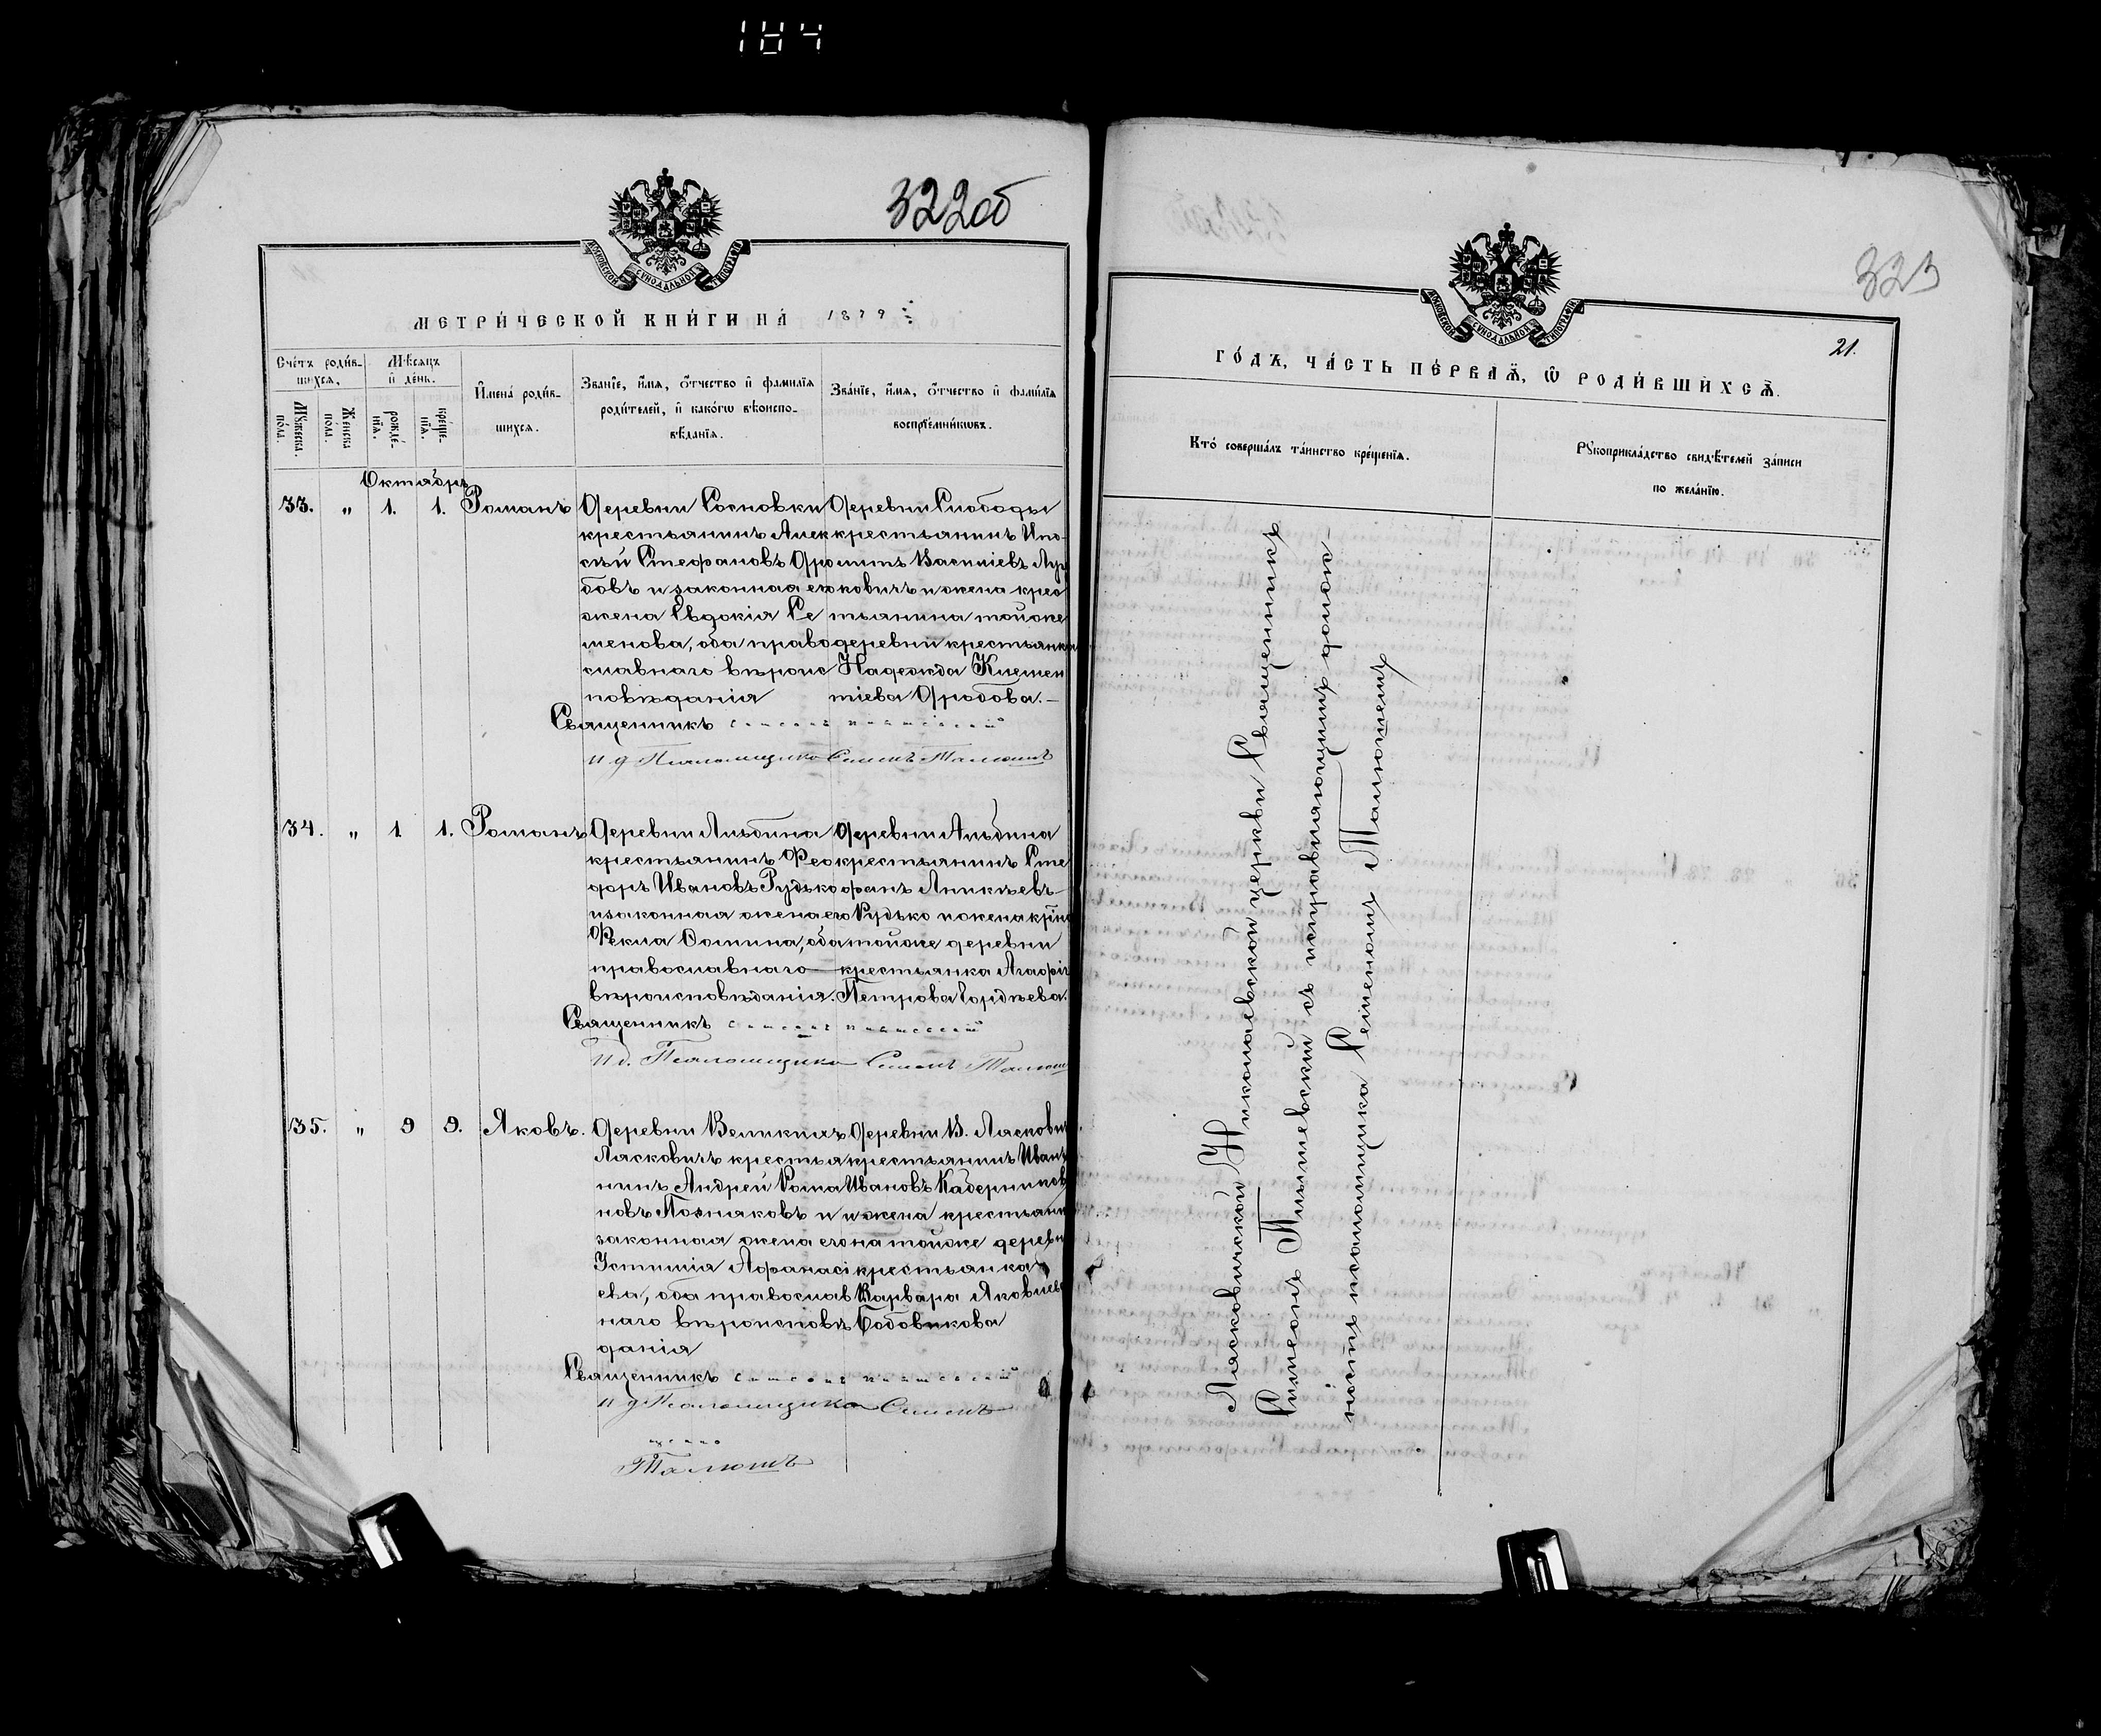 184
322об
МОСКОВСКОЙ СѴНОДАЛЬНОЙ ТИПОГРАФІИ
МЕТРИ́ЧЕСКОЙ КНИ́ГИ НА́ 1879
Сче́тъ роди́в-
шихся,
Мѣ́сяцъ
и҆ де́нь.
Мꙋ́жеска
по́ла.
Же́нска
по́ла.
рожде́-
нїѧ.
креще́-
нїѧ.
И҆мена̀ роди́в-
шихсѧ.
Зва́нїе, и҆́мѧ, ѻ҆́тчество и҆ фами́лїѧ
роди́телей, и҆ како́гѡ вѣ̀роиспо-
вѣ́данїѧ.
Зва́нїе, и҆́мѧ, ѻ҆́тчество и҆ фами́лїѧ
воспрїе́мникѡвъ.
Октябрь
33. „ 1. 1. Романъ
Деревни Сосновки
крестьянинъ Алек
сѣй Стефановъ Дро
бовъ и законная его
жена Евдокія Се
менова, оба право
славнаго вѣроис
повѣданія
Деревни Слободы
крестьянинъ Ипо
литъ Василіевъ
ковичъ и жена крес
тьянина тойже
деревни крестьянка
Надежда Клемен
тіева Дробова.—
Священникъ
и д Псаломщика Семенъ Талюшъ
34. „ 1 1. Романъ
Деревни
крестьянинъ Фео
доръ Ивановъ Рудько
и законная жена его
Фекла Фомина, оба
православнаго
вѣроисповѣданія.
Деревни
крестьянинъ Сте
фанъ Аникѣевъ
Рудько и жена
тойже деревни
крестьянка Агафія
Петрова Гордѣева.
Священникъ
И д. Псаломщика Семенъ Талюшъ
35. „ 9 9. Яковъ.
Деревни Великихъ
Лясковичъ крестья
нинъ Андрей Рома
новъ Позняковъ и
законная жена его
Устинія Афанасі
ева, оба православ
наго вѣроисповѣ
данія
Деревни В. Лясковичъ
крестьянинъ Иванъ
Ивановъ
и жена крестьяни
на тойже деревни
крестьянка
Варвара Яковлева
Бодовикова
Священникъ
и д Псаломщика Семенъ
Талюшъ
323
21.
МОСКОВСКОЙ СѴНОДАЛЬНОЙ ТИПОГРАФІИ
ГО́ДЪ, ЧА́СТЬ ПЕ́РВАѦ, Ѡ҆ РОДИ́ВШИХСѦ.
Кто̀ соверша́лъ та́инство креще́нїѧ.
Рꙋкоприкла́дство свидѣ́телей за́писи
по жела́нїю.
Лясковичской Николаевской церкви Священникъ
Симеонъ съ исправляющимъ долж-
ность псаломщика Семеномъ Талюшемъ